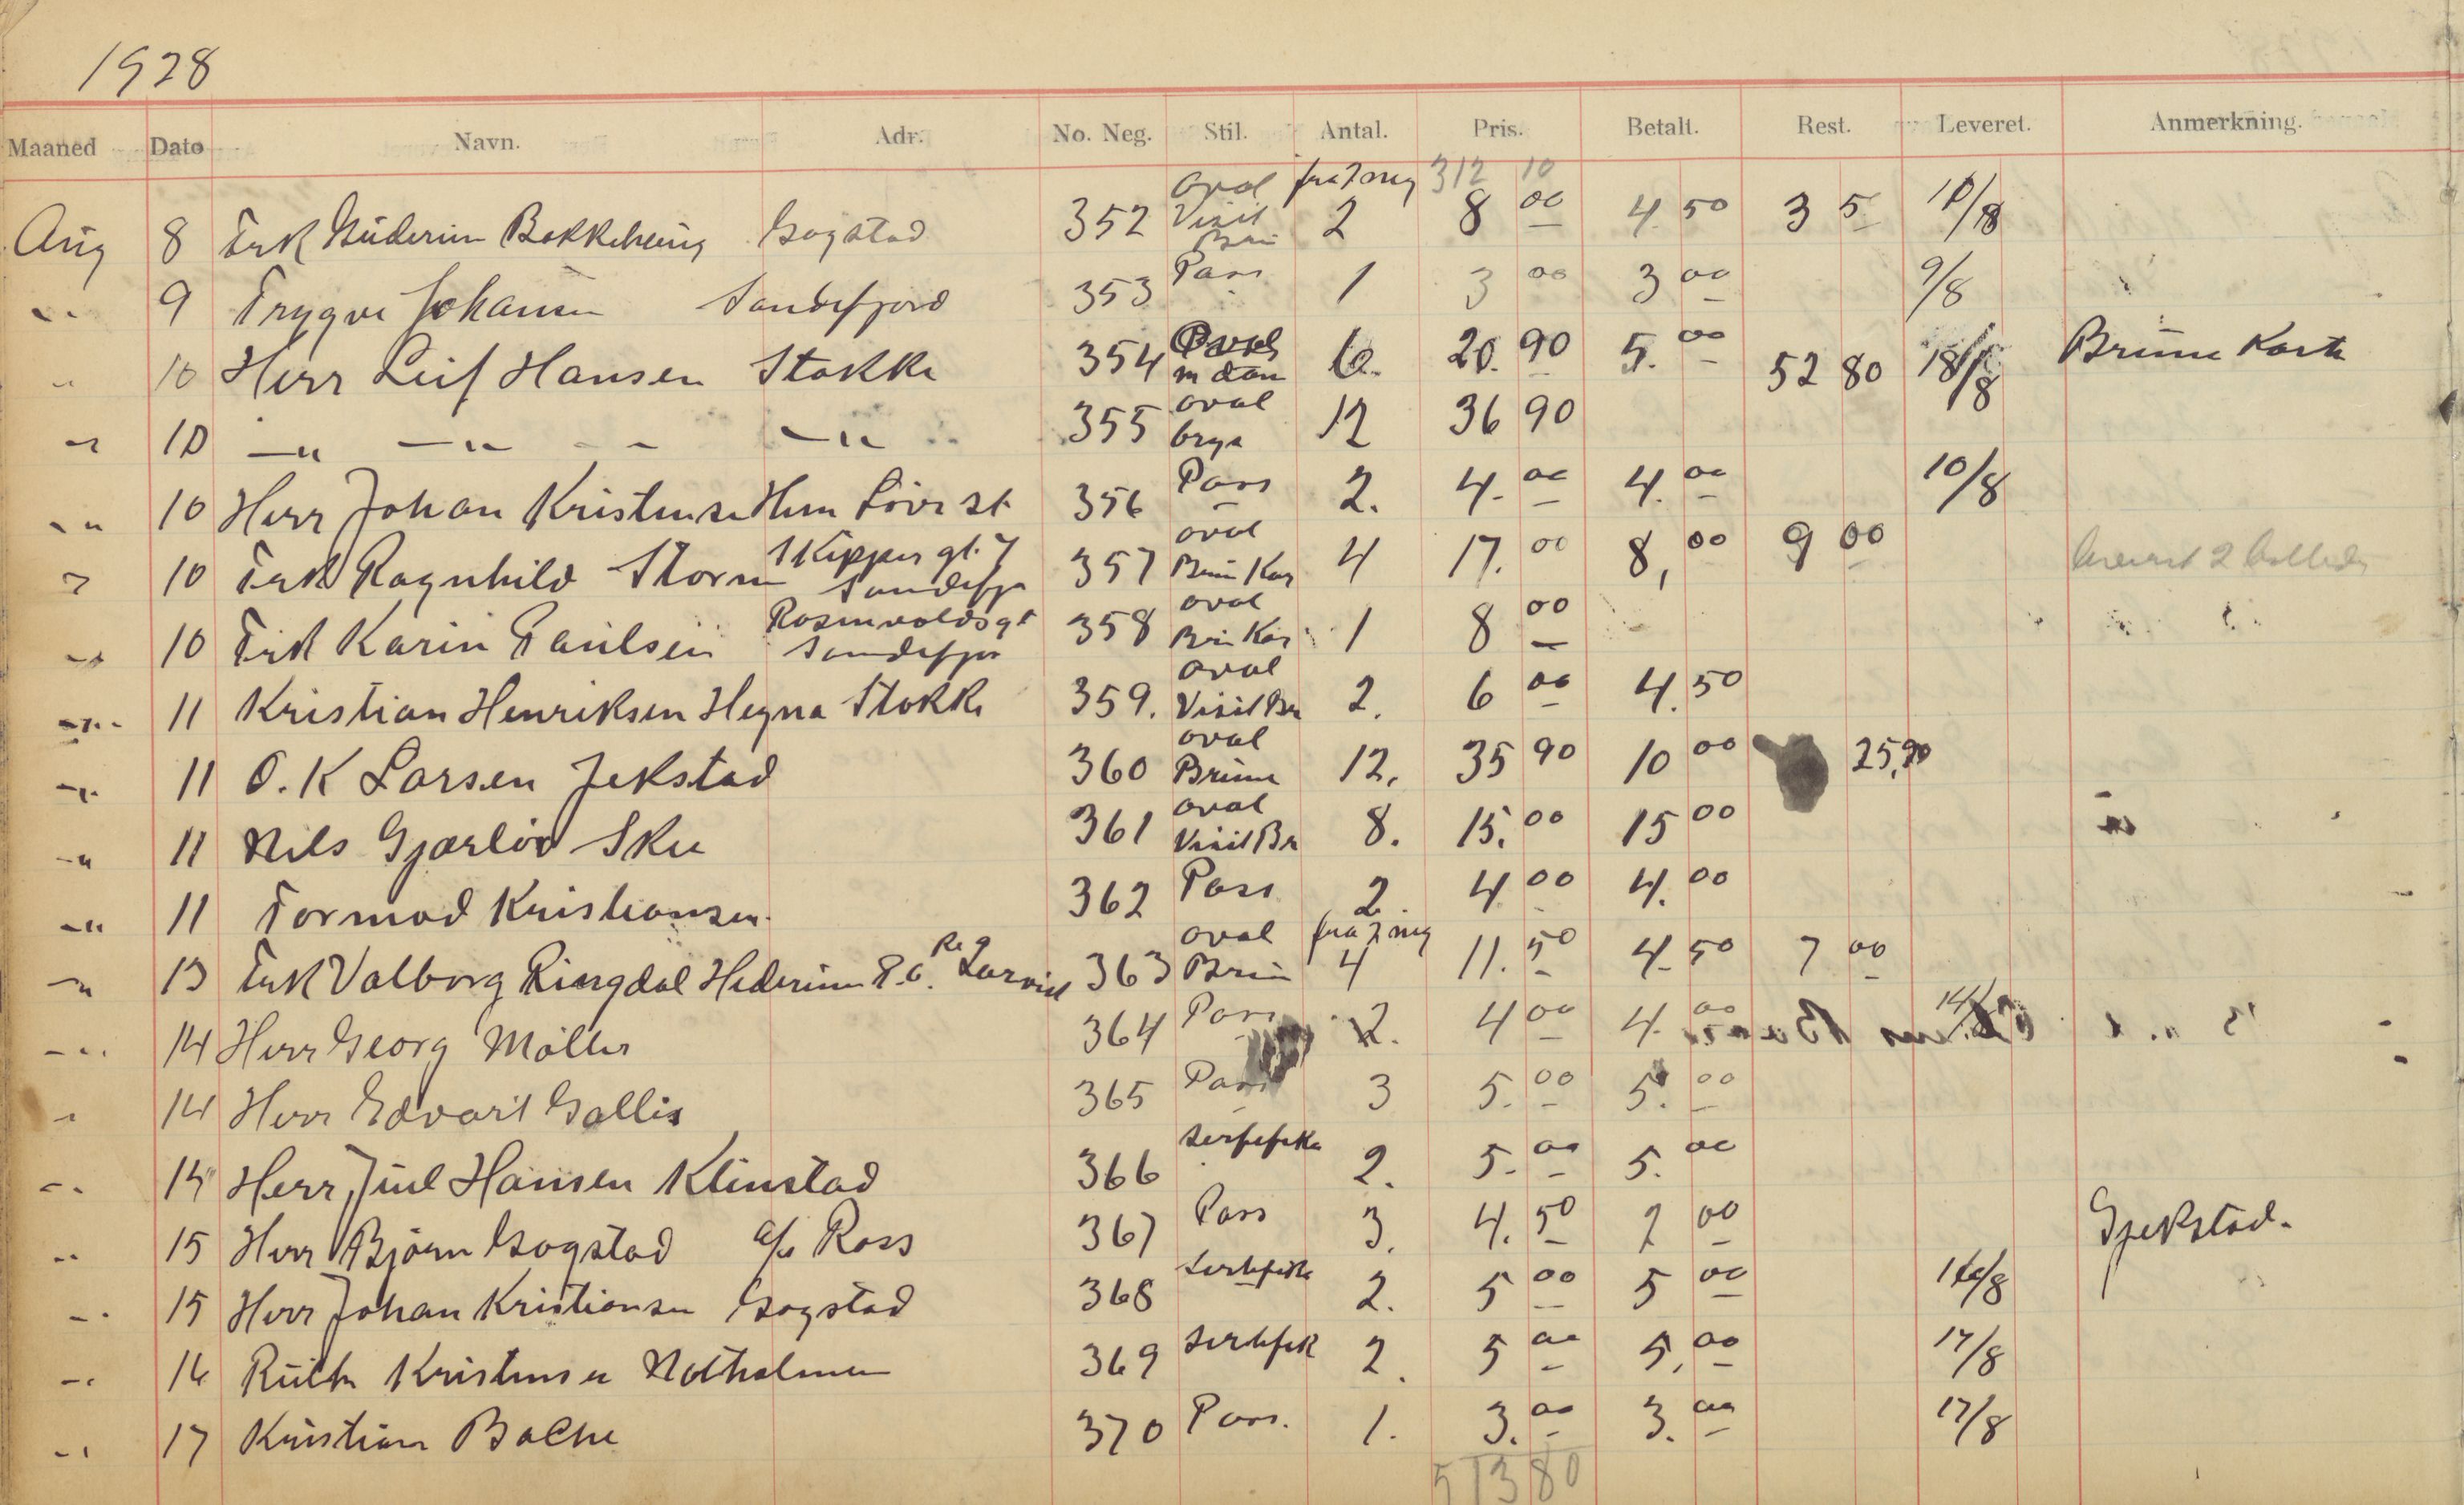 1928
Maaned Dato Navn. Adr. No. Neg. Stil. Antal. Pris. Betalt. Rest. Leveret. Anmerkning.
312 10
Aug 8 Frk Bakkehaug Gogstad 352 Oval Visit Brun fra 2 neg 2 8 00 4 50 3 5 10/8
-" 9 Trygve Johansen Sandefjord 353 Pass 1 3 00 3 00 9/8
-" 10 Herr Leif Hansen Stokke 354 6. 20. 90 5. 00 52 80 18/8 Brune Karte
-" 10 -"- -"- -"- 355 oval 12 36 90
-" 10 Herr Johan Kristensen Hem Löve st 356 Pass 2. 4. 00 4. 00 10/8
-" 10 Frk Ragnhild Storm Skippergt. 7 Sandefjr 357 oval Brun Kar 4 17. 00 8, 00 9 00
-" 10 Frk Karin Paulsen Rosenvoldsgt Sandefjor 358 oval Brun Kar 1 8 00
-" 11 Kristian Henriksen Hegna Stokke 359. oval Visit Br 2. 6 00 4. 50
-" 11 O. K Larsen Jekstad 360 oval Brune 12. 35 90 10 00 25,90
-" 11 Nils Gjærlöv Sku 361 oval Visit Br 8. 15. 00 15 00
-" 11 Tormod Kristiansen. 362 Pass 2. 4 00 4. 00
-" 13 Frk Valborg Ringdal Hedrum P.o. Larvik 363 oval Brun fra 2 neg 4 11. 50 4. 50 7 00
-" 14 Herr Georg Möller 364 Pass 2. 4 00 4. 00
-" 14 Herr Edvart Gallis 365 Pass 3 5. 00 5. 00
-" 14 Herr Juul Hansen Klinestad 366 Sertefika 2. 5. 00 5. 00
-" 15 Herr Björn Gogstad c/o Ross 367 Pass 3. 4. 50 2 00 Gjekstad.
-" 15 Herr Johan Kristiansen Gogstad 368 Sertefika 2. 5 00 5 00 16/8
-" 16 Ruth Kristensen Notholmen 369 Sertefik 2. 5 00 5. 00 17/8
-" 17 Kristian Bache 370 Pass. 1. 3. 00 3. 00 17/8
513 80